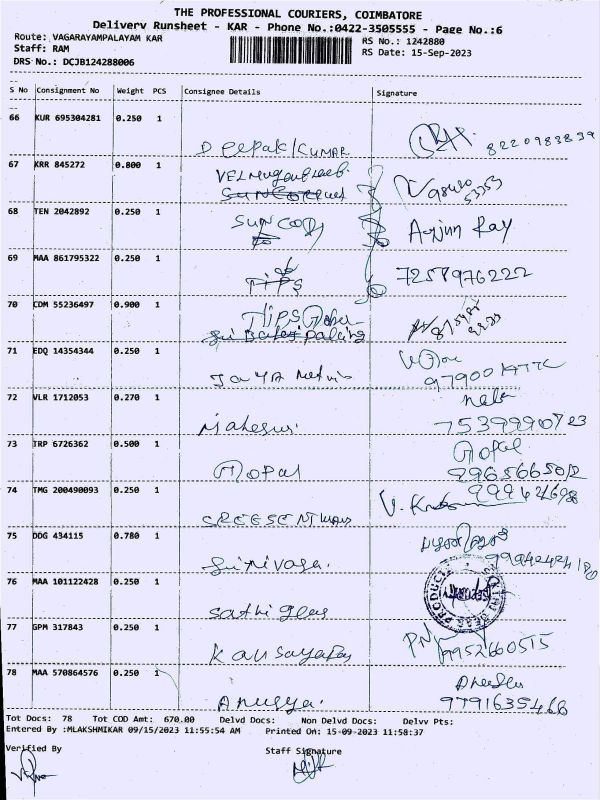 THE PROFESSIONAL COURIERS, COIMBATORE
Delivery Runsheet - KAR - Phone No.:0422-3505555 - Page No.:6
Route: VAGARAYAMPALAYAM KAR
RS No.: 1242880
Staff: RAM
RS Date: 15-Sep-2023
DRS No.: DCJB124288006
S No Consignment No Weight PCS Consignee Details Signature
66 KUR 695304281 0.250 1
Deepak KUMAR 8220983839
67 KRR 845272 0.800 1
68 TEN 2042892 0.250 1
SUNCOD Arjun Ray
69 MAA 861795322 0.250 1
TIPS 7258976222
70 CDM 55236497 0.900 1
71 EDQ 14354344 0.250 1
JAYA
72 VLR 1712053 0.270 1
Maheswri 7539990723
73 TRP 6726362 0.500 1
Gopal Gopal
9965665012
74 TMG 200490093 0.250 1
75 DDG 434115 0.780 1
Srinivasa
76 MAA 101122428 0.250 1
Sathi glas
77 GPM 317843 0.250 1
Kausalya 9952660515
78 MAA 570864576 0.250 1
Anusya. 9791635468
Tot Docs: 78 Tot COD Amt: 670.00 Delvd Docs: Non Delvd Docs: Delvv Pts:
Entered By :MLAKSHMIKAR 09/15/2023 11:55:54 AM Printed On: 15-09-2023 11:58:37
Verified By Staff Signature